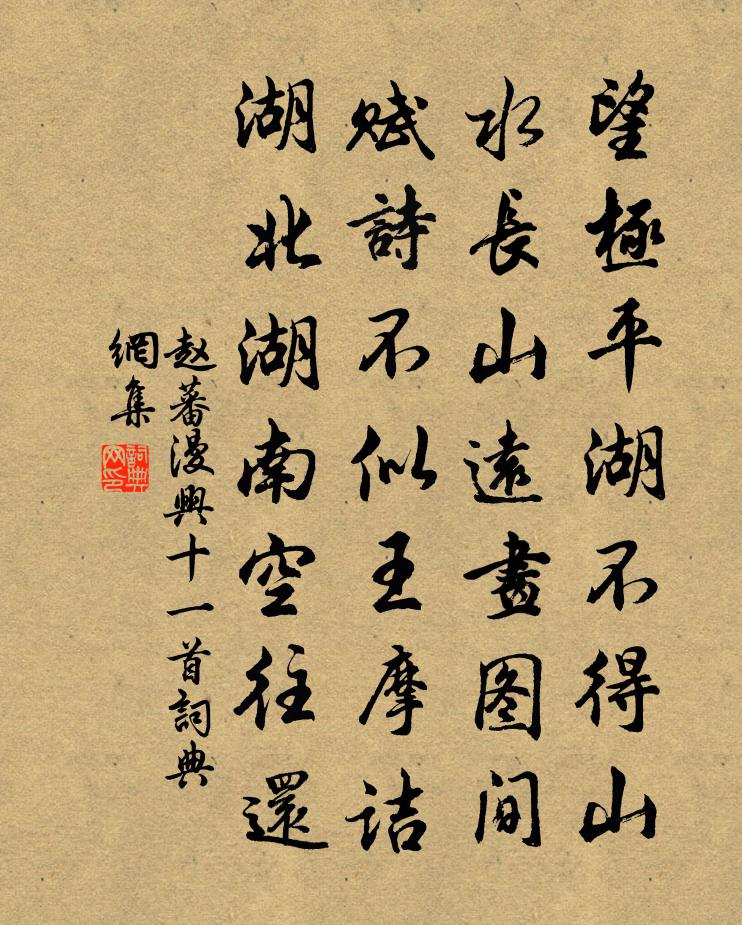 望極平湖不得山
水長山遠畫图間
赋詩不似王摩詰
湖北湖湖南空往還
赵蕃漫興十一首詞典
網集
詞典
网印